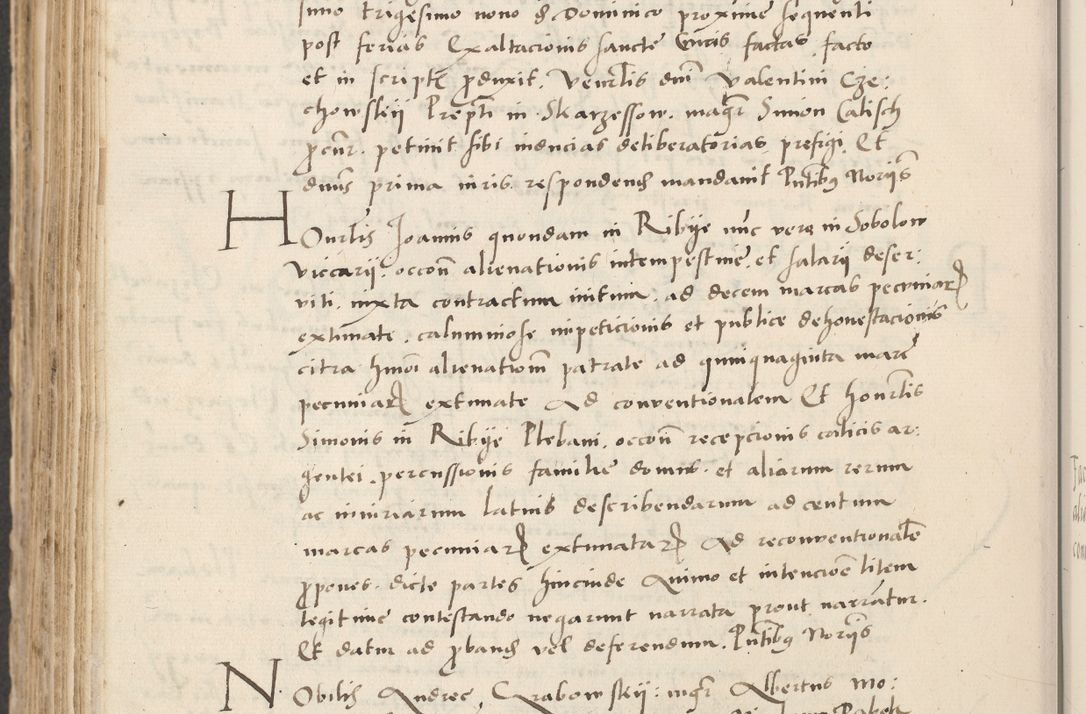 simo trigesimo nono & Dominico proxime sequenti
post ferias Exaltacionis sancte Crucis factas, facto
et in scriptis produxit. Venerlis dni Valentini Cze:
chowskij Prepti in Skarzessow. magr Simon Calisch
procur. petivit sibi inducias deliberatorias prefigi. Et
dnus prima iuris respondend mandavit Pntibus Norijs
Honrlis Joannis quondam in Ribije nunc vero in Sobolow
viccarij. occon alienationis intempestive, et salarij deser:
viti, iuxta contractum initum, ad decem marcas pecuniar
extimate, calumniose impeticionis et publice dehonestacionis
citra hmoi alienationem patrate ad quinquaginta marc
pecuniar extimate Ad conventionalem Et honrlis
Simonis in Ribije Plebani. occon recepcionis calicis ar:
gentei, percussionis familie domus. et aliarum rerum
ac iniuriarum latius describendarum ad centum
marcas pecuniar extimatar Ad reconventionale
propones. dicte partes hincinde Animo et intencione litem
legitime contestando negarunt narrata prout narrantur.
Et datur ad proband vel deferendum. Pntibus Norijs
Nobilis Andree Grabowskij: mgr Albertus Mo: